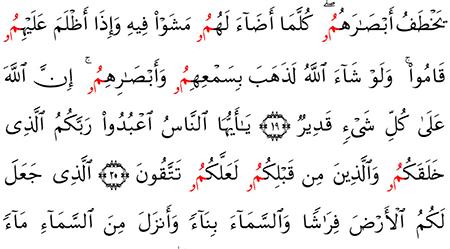 يَخْطَفُ أَبْصَٰرَهُمُۥ ۖ كُلَّمَا أَضَآءَ لَهُمُۥ مَشَوْا۟ فِيهِ وَإِذَا أَظْلَمَ عَلَيْهِمُۥ
قَامُوا۟ ۚ وَلَوْ شَآءَ ٱللَّهُ لَذَهَبَ بِسَمْعِهِمُۥ وَأَبْصَٰرِهِمُۥ ۚ إِنَّ ٱللَّهَ
عَلَىٰ كُلِّ شَىْءٍ قَدِيرٌ ١٩ يَٰأَيُّهَا ٱلنَّاسُ ٱعْبُدُوا۟ رَبَّكُمُ ٱلَّذِى
خَلَقَكُمُۥ وَٱلَّذِينَ مِن قَبْلِكُمُۥ لَعَلَّكُمُۥ تَتَّقُونَ ٢٠ ٱلَّذِى جَعَلَ
لَكُمُ ٱلْأَرْضَ فِرَٰشًا وَٱلسَّمَآءَ بِنَآءً وَأَنزَلَ مِنَ ٱلسَّمَآءِ مَآءً